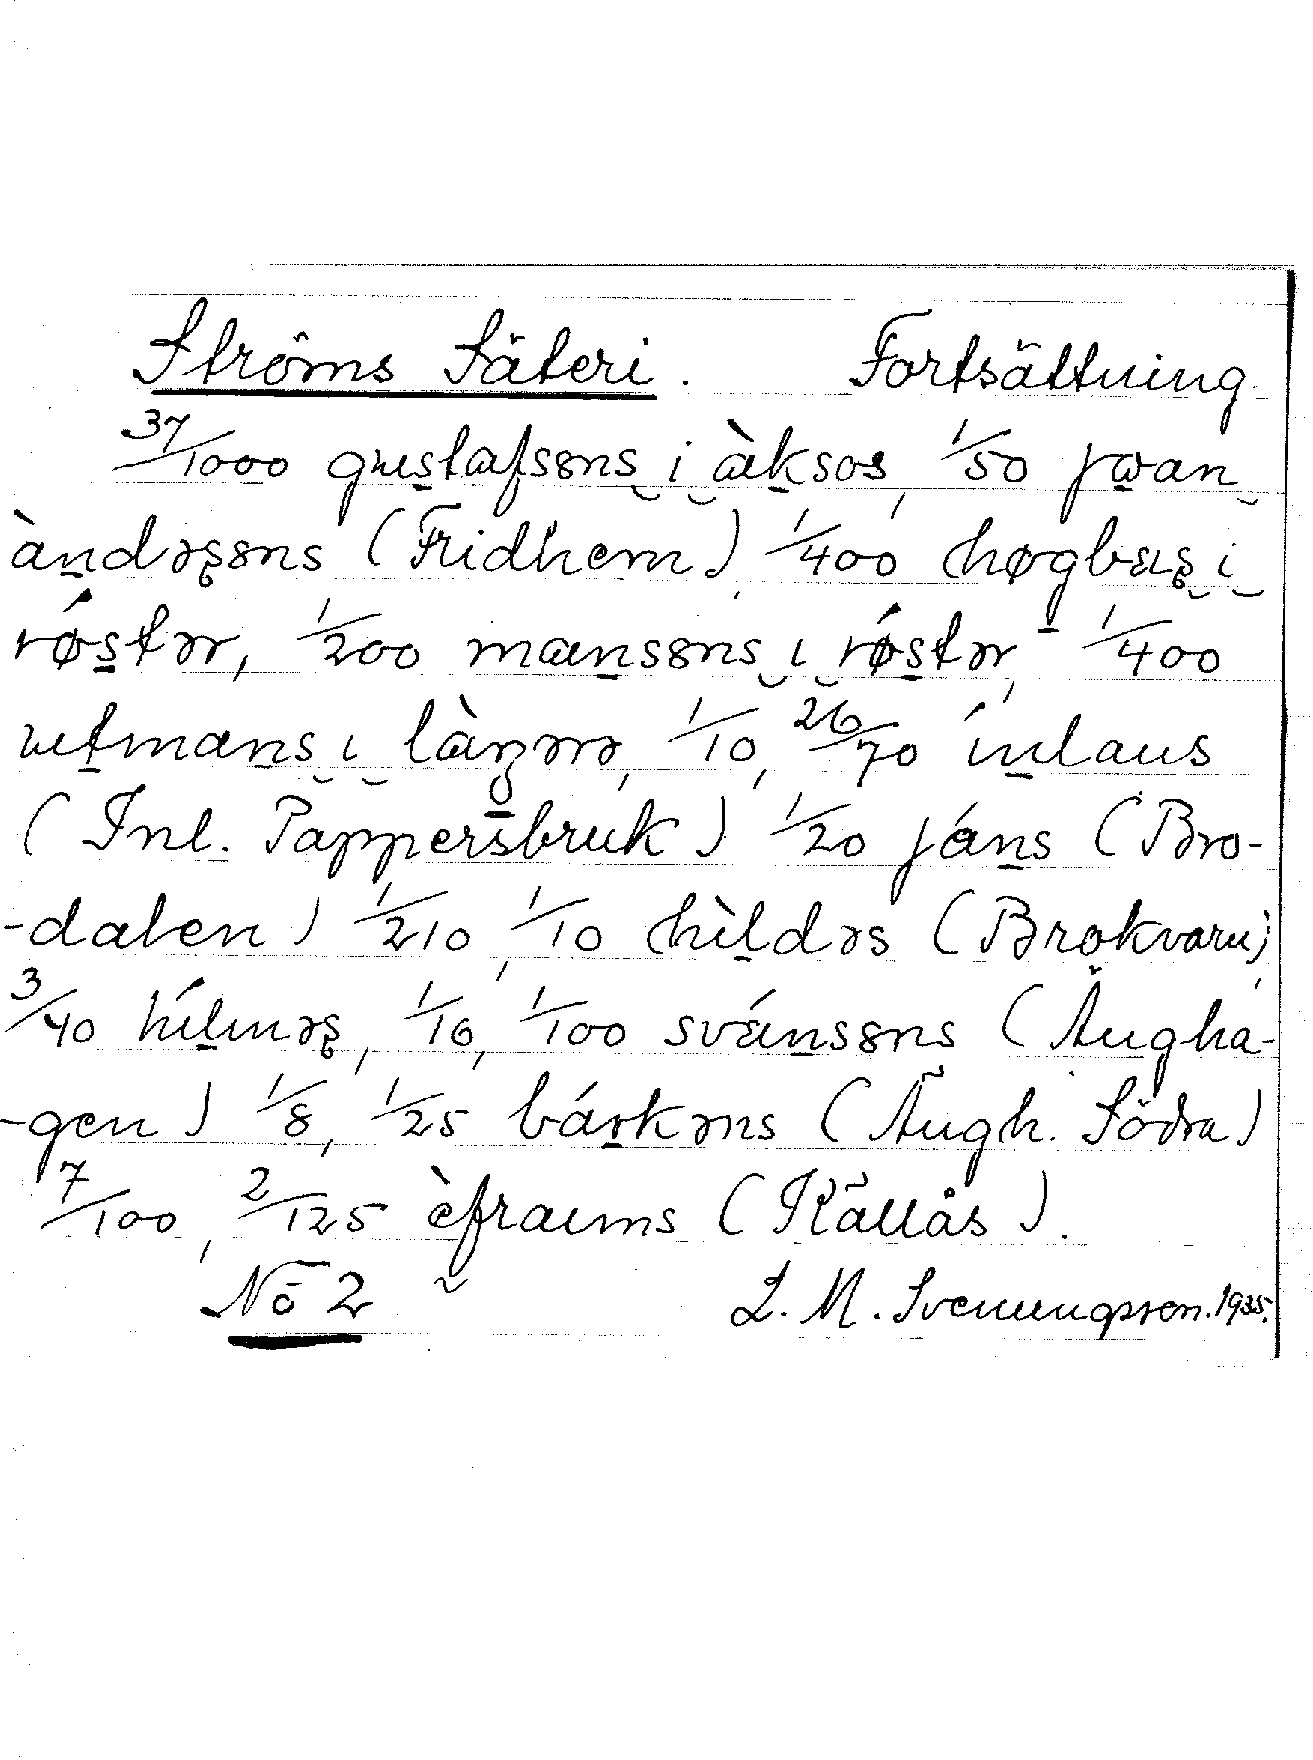 Ströms Säteri. Fortsättning
37/1000 gustafsɞns i àksos, 1/50 jɷan
àndɘʂɞns (Fridhem), 1/400 høgbɷʂ i
røstɘr, 1/200 mansɞns ɩ røstɘr, 1/400
utmans ɩ làŋɘrɘ, 1/10, 26/70 ínlaus
(Inl. Pappersbruk) 1/20 jáns (Bro-
-dalen) 1/210, 1/10 hìldɘs (Brokvarn),
3/40 hílmɘʂ, 1/16, 1/100 svánsɞns (Ängha-
-gen) 1/8, 1/25 bárkɘns (Ängh. Södra)
7/100, 2/125 èfraims (Källås).
No 2 L. M. Svenungsson. 1935.